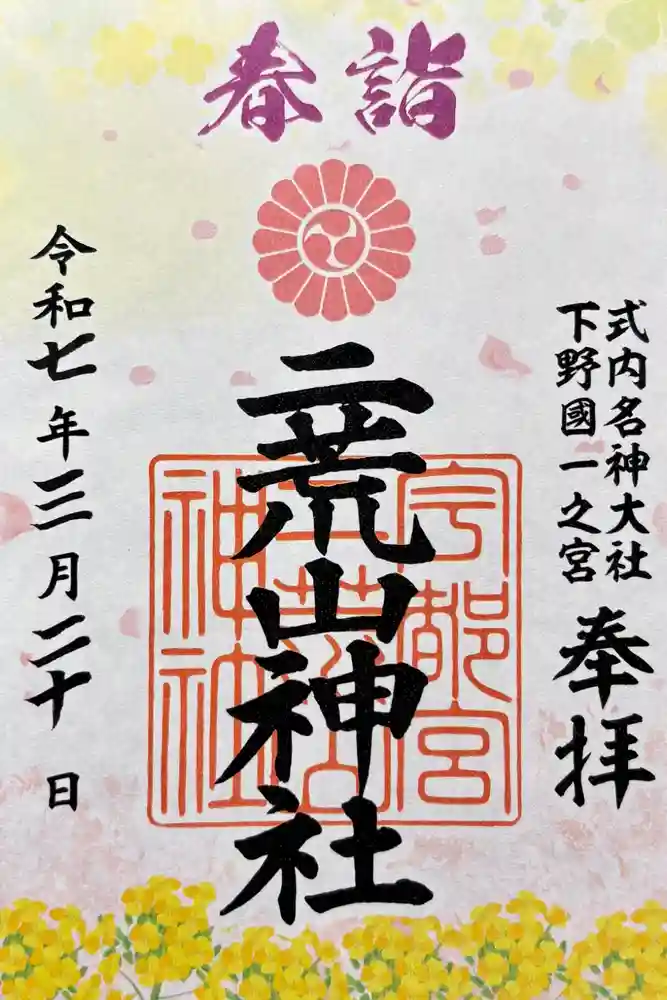 春詣
式内名神大社
下野國一之宮
奉拝
二荒山神社
宇都宮
二荒山
神社
令和七年三月二十日